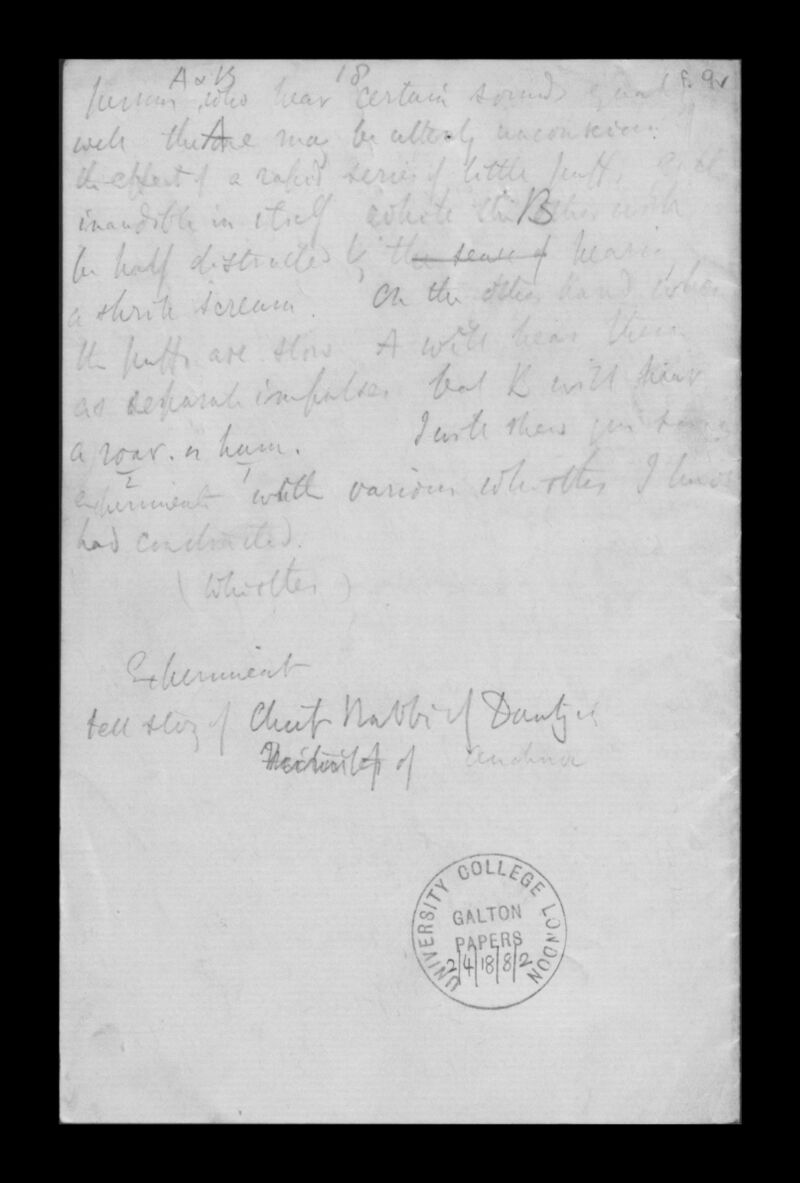 18 f. 9v
A & B
persons who hear certain sounds equally
well the A one may be utterly unconscious
the effect of a rapid series of little puffs, each
inaudible in itself while the B other will
be half distracted by the sense of hearing
a shrill scream. On the other hand when
the puffs are slow A will hear them
as separate impulses but B will hear
a roar. or hum. I will shew you some
2 1
experiments with various whistles I have
had constructed.
(Whistles)
Experiment
tell story of Chief Rabbi of Dantzig
of
UNIVERSITY COLLEGE LONDON
GALTON
PAPERS
2/4/18/8/2